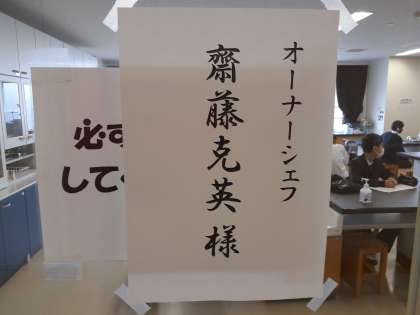 オーナーシェフ
齋藤克英様
必ず
して